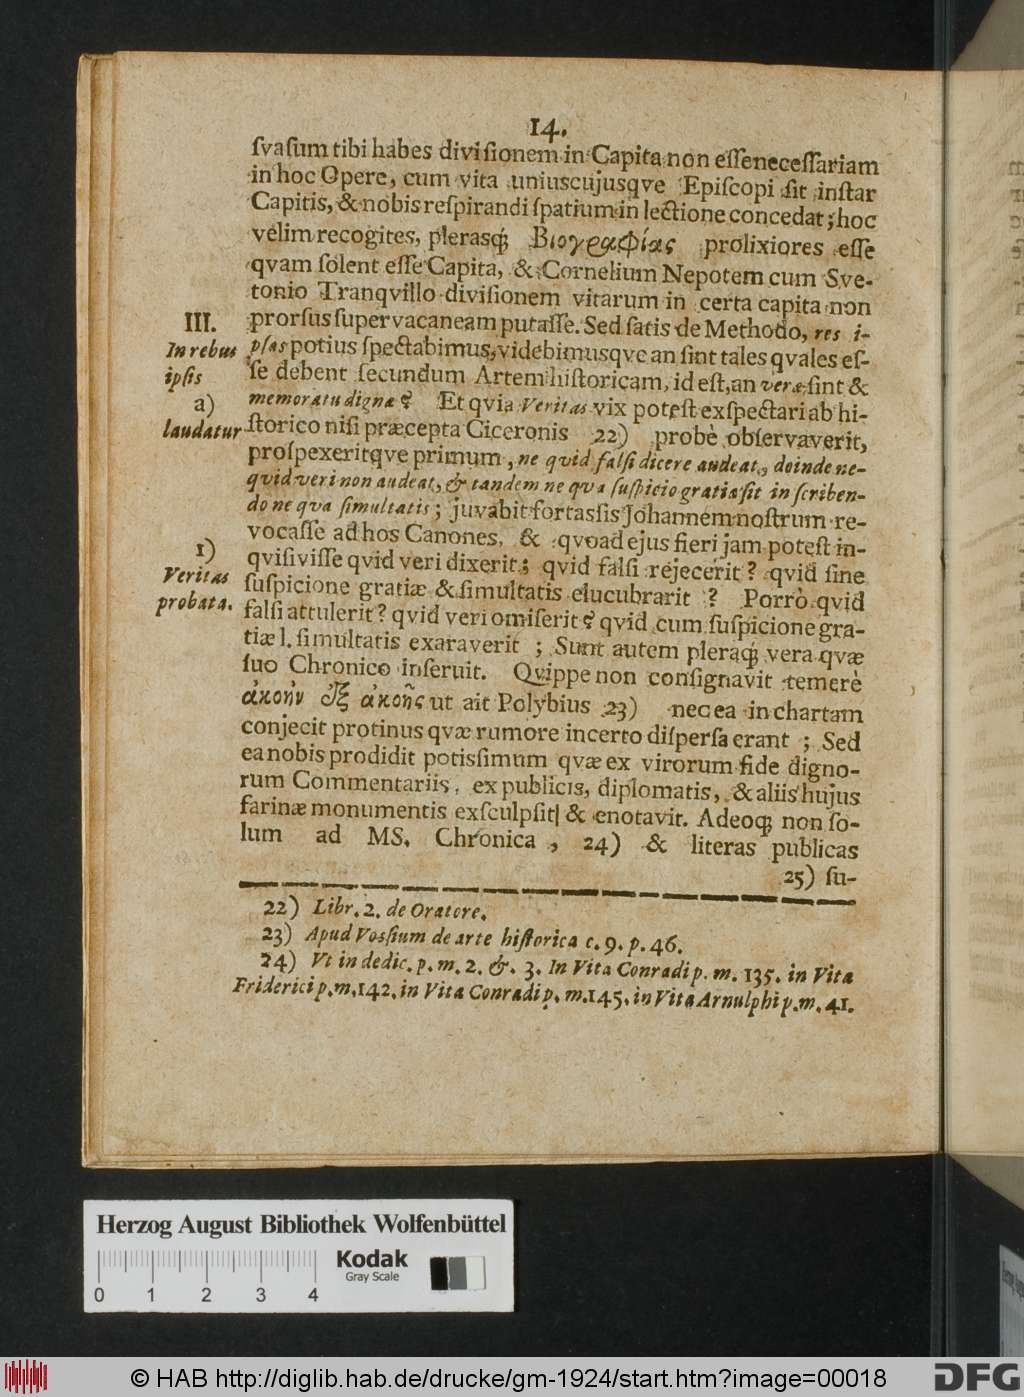 14.
ſvaſum tibi habes diviſionem in Capita non eſſe neceſſariam
in hoc Opere, cum vita uniuscujusqve Epiſcopi ſit inſtar
Capitis, & nobis reſpirandi ſpatium in lectione concedat; hoc
velim recogites, plerasq; Βιογραφίας prolixiores eſſe
qvam ſolent eſſe Capita, & Cornelium Nepotem cum Sve-
tonio Tranqvillo diviſionem vitarum in certa capita non
III.
prorſus ſupervacaneam putaſſe. Sed ſatis de Methodo, res i-
In rebus
pſas potius ſpectabimus, videbimusqve an ſint tales qvales eſ-
ipſis
ſe debent ſecundum Artem hiſtoricam, id eſt, an veræ ſint &
a)
memoratu dignæ? Et qvia Veritas vix poteſt exſpectari ab hi-
laudatur
ſtorico niſi præcepta Ciceronis 22) probè obſervaverit,
proſpexeritqve primum, ne quid falſi dicere audeat, deinde ne-
quid veri non audeat, & tandem ne qva ſuſpicio gratiæ ſit in ſcriben-
do ne qva ſimultatis; juvabit fortaſsis Johannem noſtrum re-
vocaſſe ad hos Canones, & qvoad ejus fieri jam poteſt in-
1)
qviſiviſſe qvid veri dixerit; qvid falſi rejecerit? qvid ſine
Veritas
ſuſpicione gratiæ & ſimultatis elucubrarit? Porrò qvid
probata.
falſi attulerit? qvid veri omiſerit? qvid cum ſuſpicione gra-
tiæ l. ſimultatis exaraverit; Sunt autem pleraq; vera qvæ
ſuo Chronico inſeruit. Qvippe non conſignavit temerè
ἀκοὴν ἐξ ἀκοῆς ut ait Polybius 23) nec ea in chartam
conjecit protinus qvæ rumore incerto diſperſa erant; Sed
ea nobis prodidit potiſſimum qvæ ex virorum fide digno-
rum Commentariis, ex publicis, diplomatis, & aliis hujus
farinæ monumentis exſculpſit| & enotavit. Adeoq; non ſo-
lum ad MS. Chronica, 24) & literas publicas
25) ſu-
22) Libr. 2. de Oratore.
23) Apud Voſsium de arte hiſtorica c. 9. p. 46.
24) Vt in dedic. p. m. 2. &. 3. In Vita Conradi p. m. 135. in Vita
Friderici p. m. 142. in Vita Conradi p. m. 145. in Vita Arnulphi p. m. 41.
Herzog August Bibliothek Wolfenbüttel
Kodak
Gray Scale
0 1 2 3 4
© HAB http://diglib.hab.de/drucke/gm-1924/start.htm?image=00018
DFG